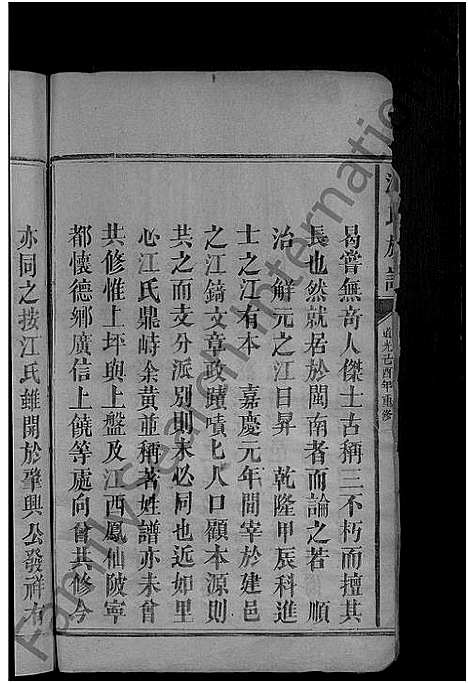 江氏族譜
道光己酉年重修
曷嘗無奇人傑士古稱三不朽而擅其
長也然就居於閩南者而論之若 順
治 解元之江日昇 乾隆甲辰科進
士之江有本 嘉慶元年間宰於建邑
之江錡文章政蹟嘖嘖人口顧本源則
共之而支分派別則未必同也近如里
心江氏鼎峙余黃並稱著姓譜亦未曾
共修惟上坪與上盤及江西鳳仙陂寧
都懷德鄉廣信上饒等處向會共修今
亦同之按江氏雖開於肇興公發祥有
FamilySearch International